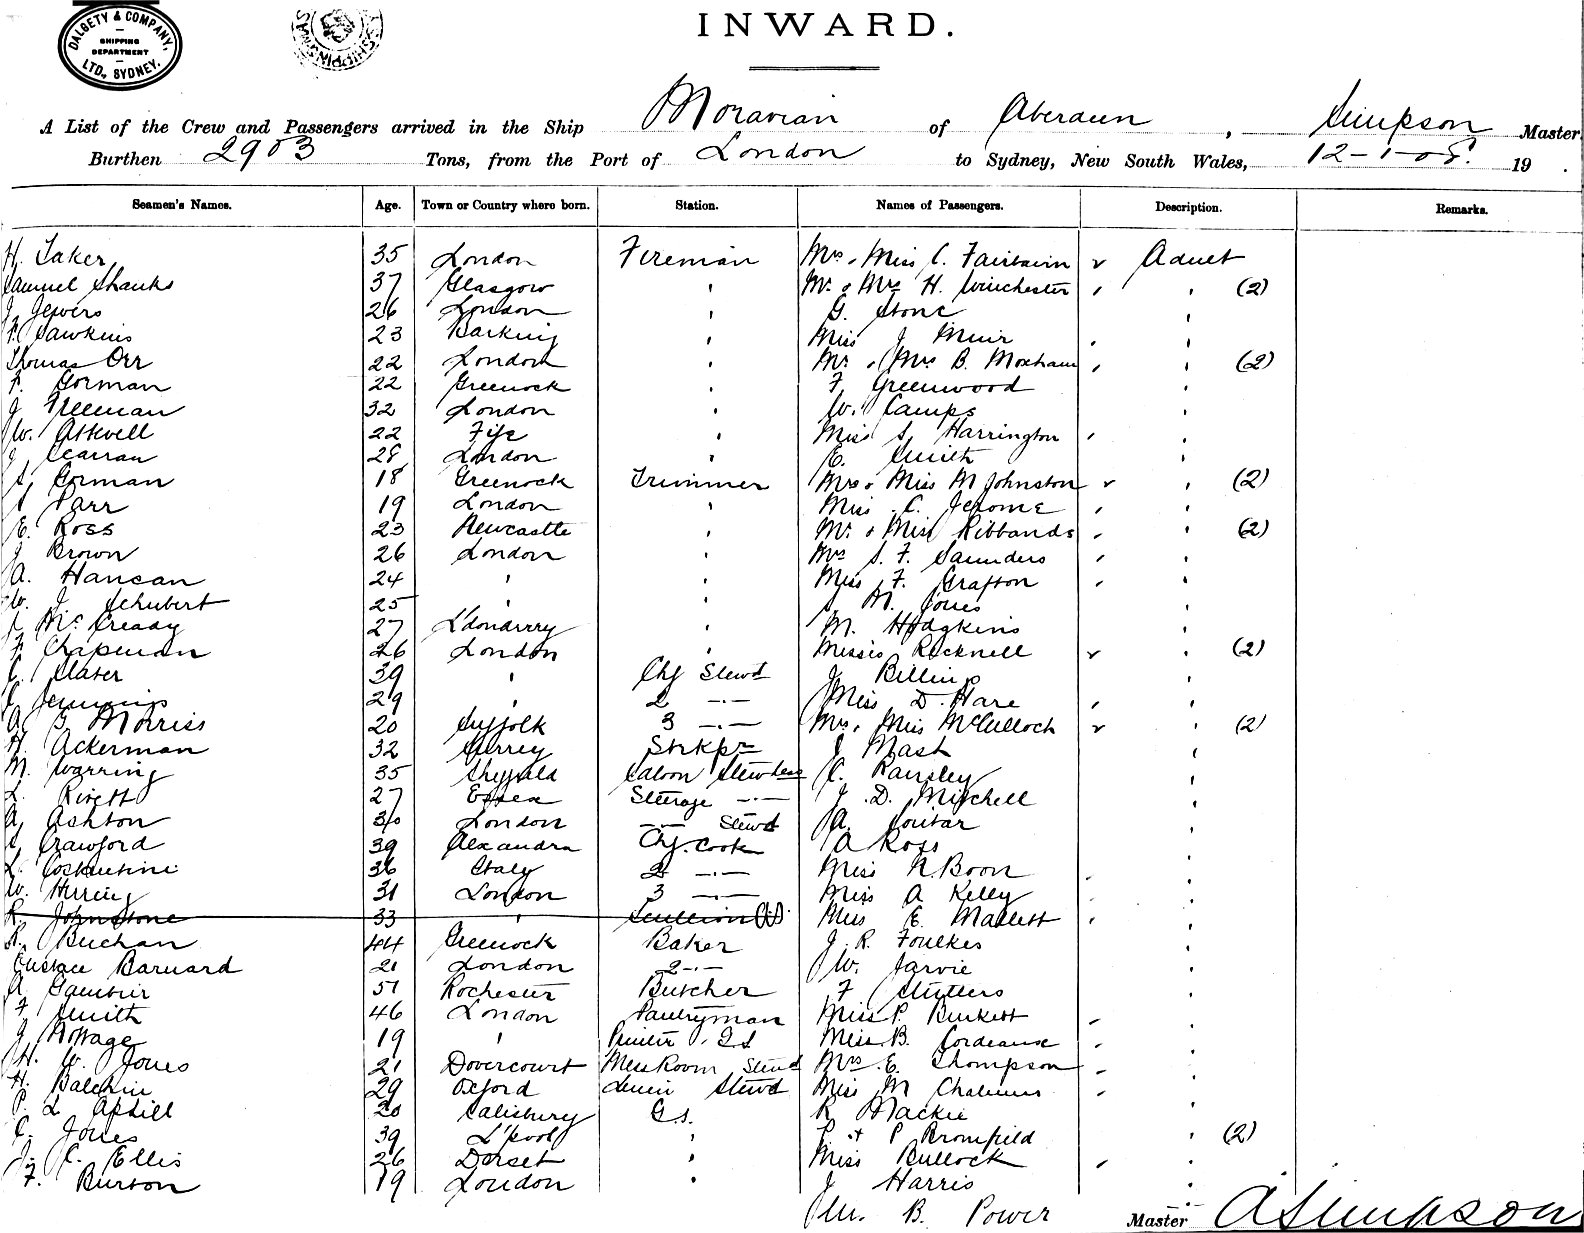 DALGETY & COMPANY,
SHIPPING
DEPARTMENT
LTD, SYDNEY.
INWARD.
A List of the Crew and Passengers arrived in the Ship Moravian of Aberdeen, Simpson Master
Burthen 2903 Tons, from the Port of London to Sydney, New South Wales, 12-1-05 19 .
Seamen's Names. Age. Town or Country where born. Station. Names of Passengers. Description. Remarks.
H. Taker 35 London Fireman Mrs, Miss C. Fairbairn Adult
Samuel Shanks 37 Glasgow ' Mr. & Mrs H. Winchester ' (2)
J. Jewers 26 London ' G. Stone '
F. Dawkins 23 Barking ' Miss J Muir '
Thomas Orr 22 London ' Mr. & Mrs B. Moxham ' (2)
F. Gorman 22 Greenock ' F Greenwood '
J Freeman 32 London ' W. Camps '
W. Attwell 22 Fife ' Miss S. Harrington '
J 28 London ' E. Smith '
S. Gorman 18 Greenock Trimmer Mrs & Miss M Johnston ' (2)
Parr 19 London ' Miss C. Jerome '
E. Ross 23 Newcastle ' Mr. & Miss Ribbands ' (2)
J Brown 26 London ' Mrs S. F. Saunders '
A. Hancan 24 ' ' Miss F. Grafton '
W. J. Schubert 25 ' ' M. Jones '
McCready 27 L'donderry ' M. Hodgkins '
F. Chapman 26 London ' Misses Rocknell ' (2)
C. Slater 39 ' Chf Stewd J Billing '
C Jennings 29 ' 2 -.- Miss D. Hare '
A G Morriss 20 Suffolk 3 -.- Mrs, Miss McCulloch ' (2)
H. Ackerman 32 Surrey Strkpr J Mash '
M. Warring 35 Sheffield Saloon Stewdess C. Ransley '
L. Rivett 27 Essex Steerage -.- J. D. Mitchell '
A. Ashton 30 London -.- Stewd A. Soutar '
Crawford 39 Alexandra Chf. Cook A Ross '
L. Costantini 36 Italy 2 -.- Miss N Boon '
W. Herring 31 London 3 -.- Miss A Kelly '
R. Johnstone 33 ' Scullion Miss E. Mallett '
R. Buchan 44 Greenock Baker J. R. Foulkes '
Eustace Barnard 21 London 2 -.- W. Jarvie '
A Gambrir 51 Rochester Butcher F Stutters '
F Smith 46 London Pantryman Miss P. Burkett '
J Nottage 19 ' Printer & G.S Miss B. Cordeaux '
H. W. Jones 21 Dovercourt Mess Room Stewd Mrs. E. Thompson '
H. Balchin 29 Oxford Stewd Miss M Chalmers '
P. L Apsill 20 Salisbury G.S. R Mackie '
C. Jones 39 L'pool ' & P Bromfield ' (2)
J. C. Ellis 26 Dorset ' Miss Bullock '
F. Burton 19 London ' J Harris '
Wm. B. Power
Master A Simpson